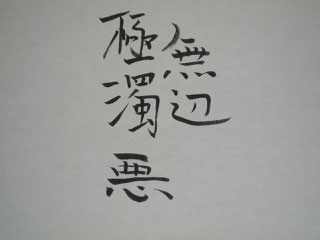 無辺
極濁悪